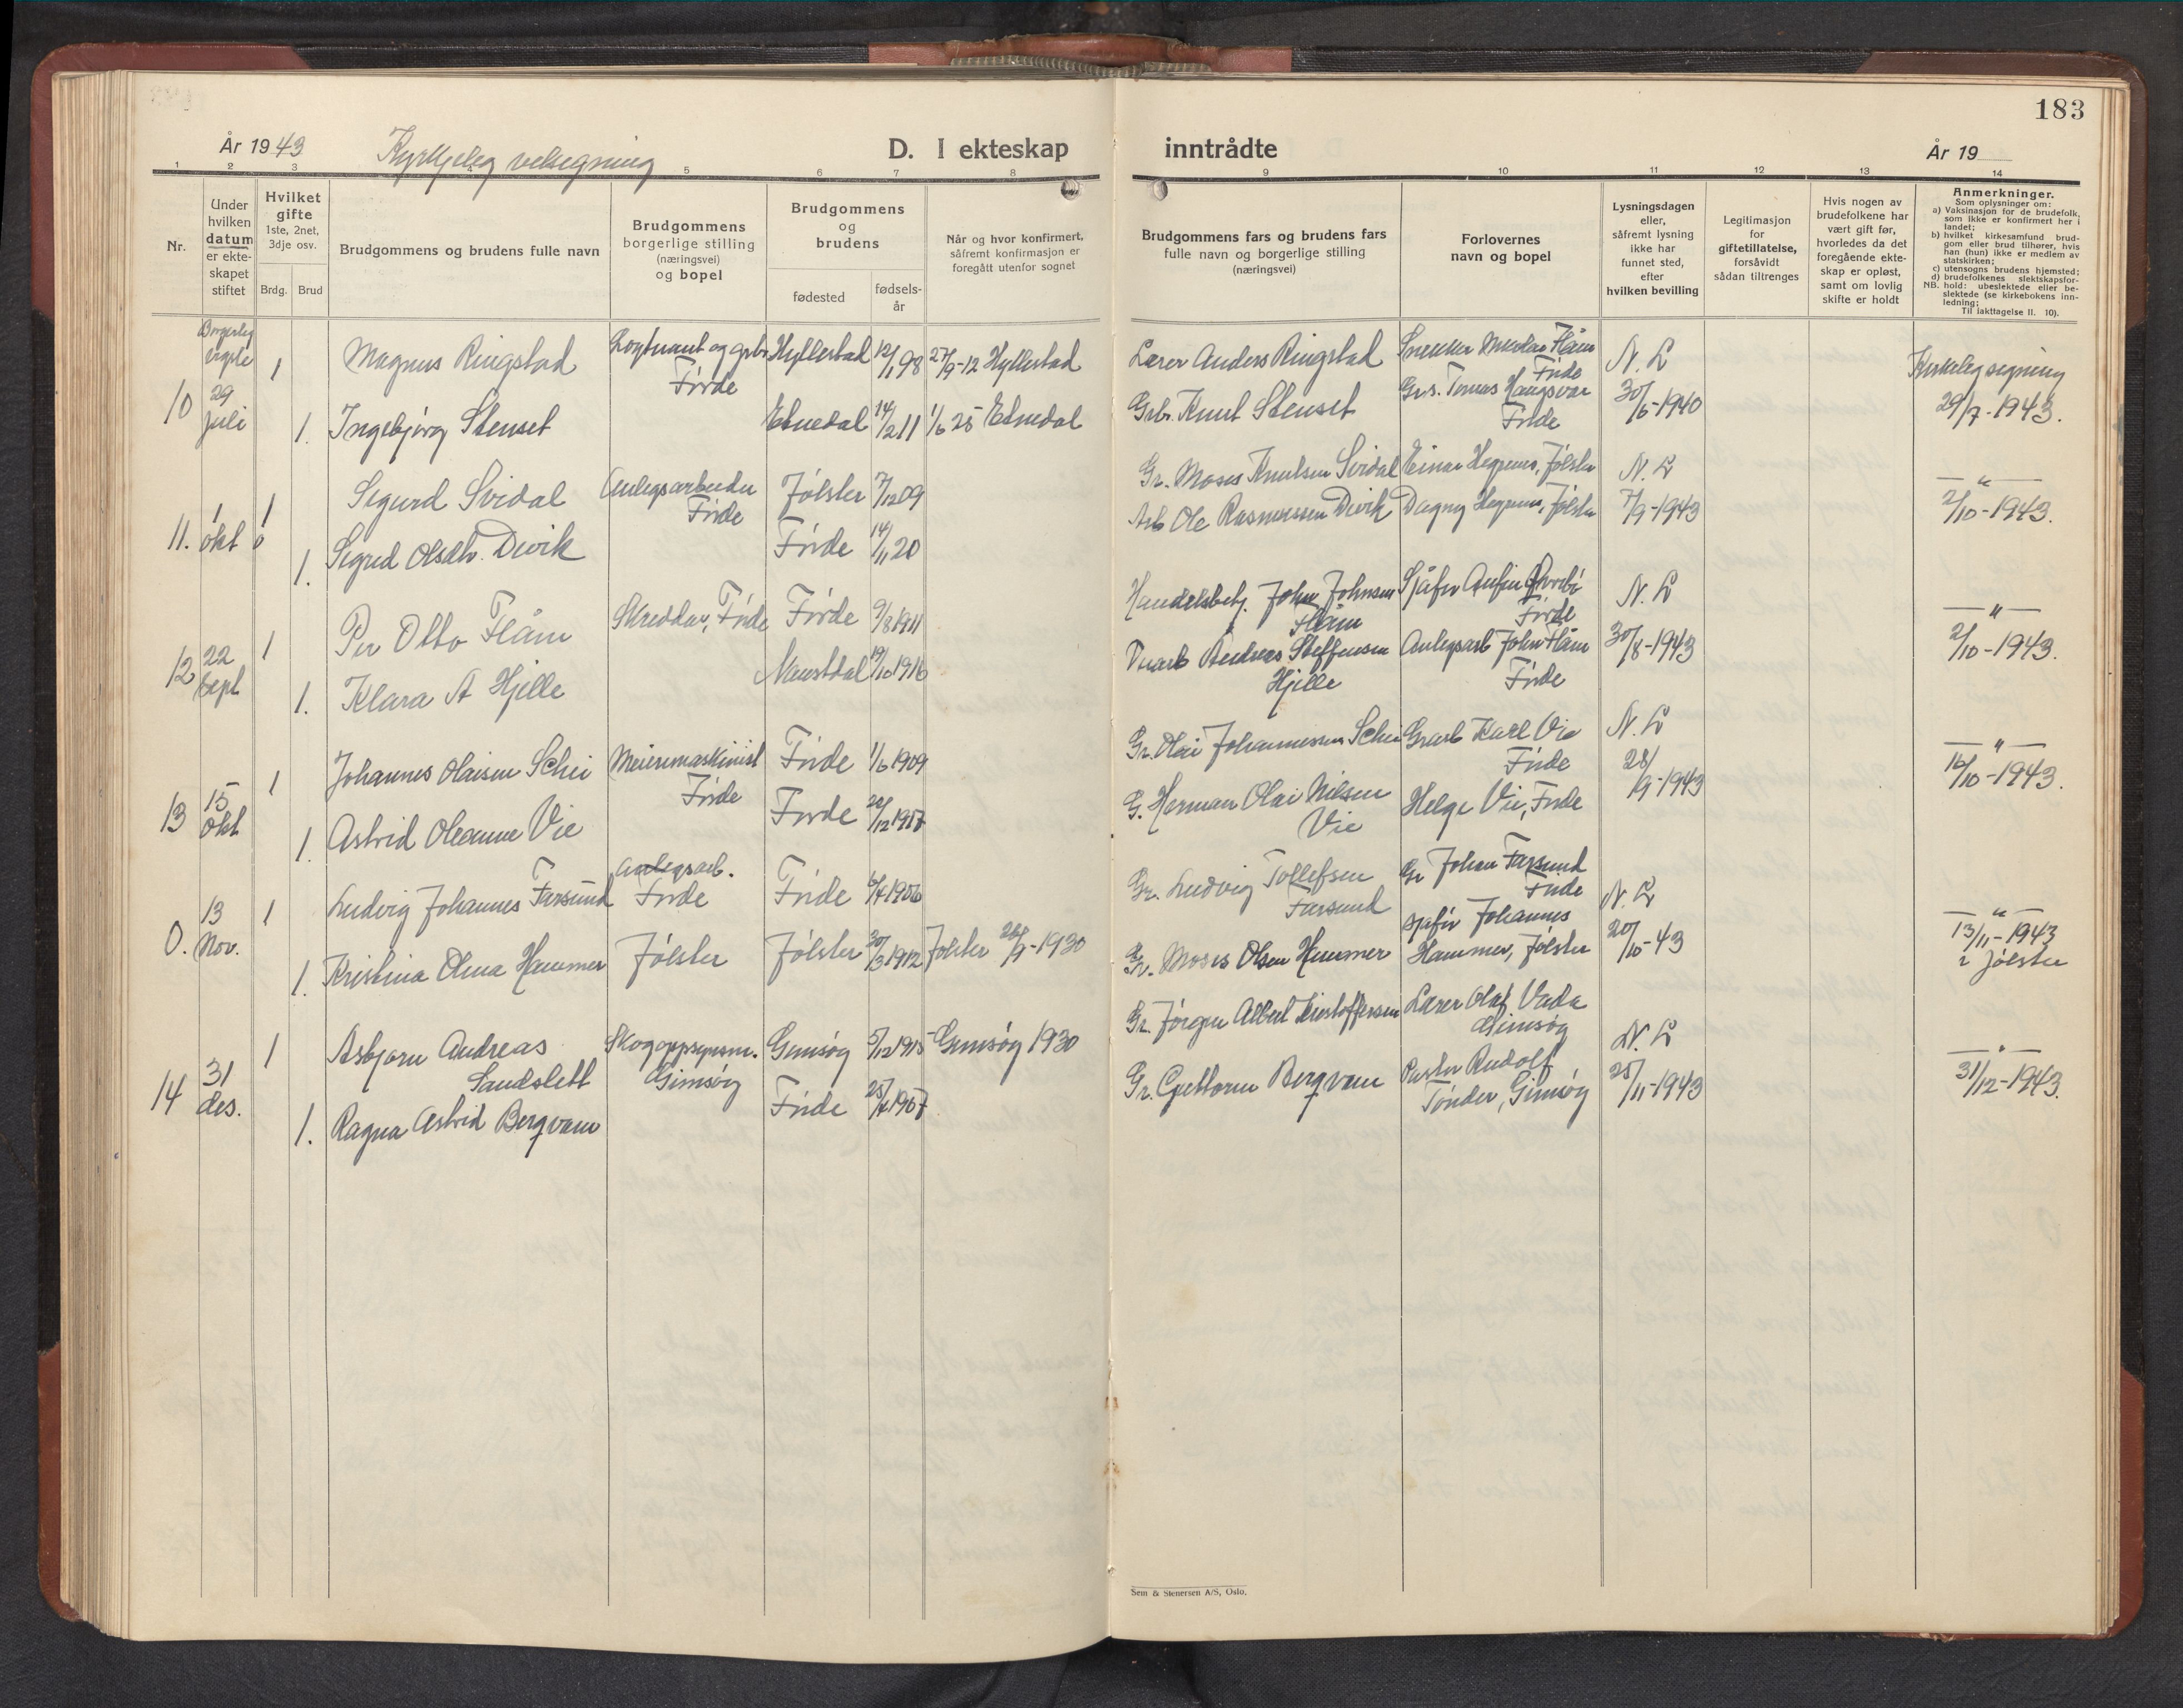 183
År 1943 Kyrkjeleg velsegning D. I ekteskap inntrådte År 19
1 2 3 5 6 7 8 9 10 11 12 13 14
Nr.
Under hvilken datum er ekte-skapet stiftet
Hvilket gifte 1ste, 2net, 3dje osv.
Brdg. Brud
Brudgommens og brudens fulle navn
Brudgommens borgerlige stilling (næringsvei) og bopel
Brudgommens og brudens
fødested
fødsels-år
Når og hvor konfirmert, såfremt konfirmasjon er foregått utenfor sognet
Brudgommens fars og brudens fars fulle navn og borgerlige stilling (næringsvei)
Forlovernes navn og bopel
Lysningsdagen eller, såfremt lysning ikke har funnet sted, efter hvilken bevilling
Legitimasjon for giftetillatelse, forsåvidt sådan tiltrenges
Hvis nogen av brudefolkene har vært gift før, hvorledes da det foregående ekte-skap er opløst, samt om lovlig skifte er holdt
Anmerkninger.
Som oplysninger om:
a) Vaksinasjon for de brudefolk, som ikke er konfirmert her i landet;
b) hvilket kirkesamfund brud-gom eller brud tilhører, hvis han (hun) ikke er medlem av statskirken;
c) utensogns brudens hjemsted;
d) brudefolkenes slektskapsfor-hold: ubeslektede eller be-slektede (se kirkebokens inn-ledning;
NB.
Til iakttagelse II. 10).
Borgerleg vigsle
1 Magnus Ringstad Løytnant og grbr Hyllestad 12/1 98 27/9-12 Hyllestad Lærer Anders Ringstad Snekker Flåm N. L Kirkeleg signing
Førde Førde
10 29 juli 1. Ingebjørg Stenset Etnedal 14/2 11 1/6 25 Etnedal Grbr. Knut Stenset Tomas Haugsvær 30/6-1940 29/7-1943.
Førde
1 Sigurd Svidal Anlegsarbeider Jølster 7/12 09 Gr. Moses Knutsen Svidal Einar Hegrenes, Jølster N. L —"—
Førde
11. 1 okt 1. Sigrid Olsdtr. Devik Førde 14/11 20 Arb Ole Rasmussen Devik Dagny Hegrenes, Jølster 7/9-1943 2/10-1943.
1 Per Otto Flåm Skreddar, Førde Førde 9/8 1911 Handelsbetj. Johan Johnsen Flåm Sjåfør Anfin N. L —"—
Førde
12 22 Sept 1. Klara A Hjelle Naustdal 19/10 1916 Andreas Steffensen Hjelle Anlegsarb John Flåm 30/8-1943 2/10-1943.
Førde
1 Johannes Olaisen Schei Meierimaskinist Førde 1/6 1909 Gr. Olai Johannessen Schei Karl Vie N. L —"—
Førde Førde
13 15 Okt 1. Astrid Oleanne Vie Førde 22/12 1917 G. Herman Olai Nilsen Vie Helge Vie, Førde 28/9-1943 16/10-1943.
1 Ludvig Johannes Farsund Anlegsarb. Førde Førde 6/4 1906 Gr. Ludvig Tollefsen Farsund Gr Johan Farsund Førde N. L —"—
0. 13 Nov. 1. Kristina Olina Hammer Jølster Jølster 30/3 1912 Jølster 28/9-1930 Gr. Moses Olsen Hammer sjåfør Johannes Hammer, Jølster 20/10-43 13/11-1943 i Jølster
1 Asbjørn Andreas Sandslett Skogoppsynsm. Gimsøy Gimsøy 5/12 1915 Gimsøy 1930 Gr. Jørgen Albert Kristoffersen Lærer Olaf Vada Gimsøy N. L —"—
14 31 des. 1. Ragna Astrid Bergvam Førde 25/4 1907 Gr. Guttorm Bergvam Pastor Rudolf Tønder, Gimsøy 25/11-1943 31/12-1943.
Sem & Stenersen A/S, Oslo.